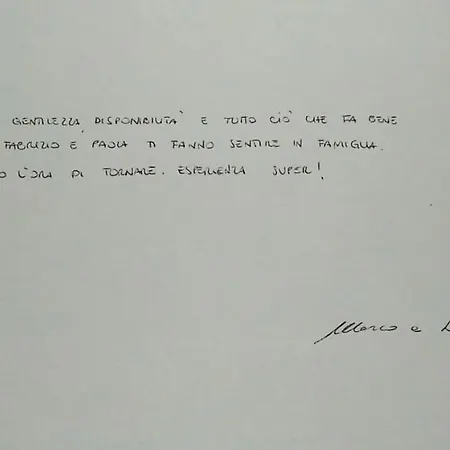 GENTILEZZA, DISPONIBILITA' E TUTTO CIÒ CHE FA BENE
FABRIZIO E PAOLA TI FANNO SENTIRE IN FAMIGLIA.
L'ORA DI TORNARE. ESPERIENZA SUPER!
Marco e